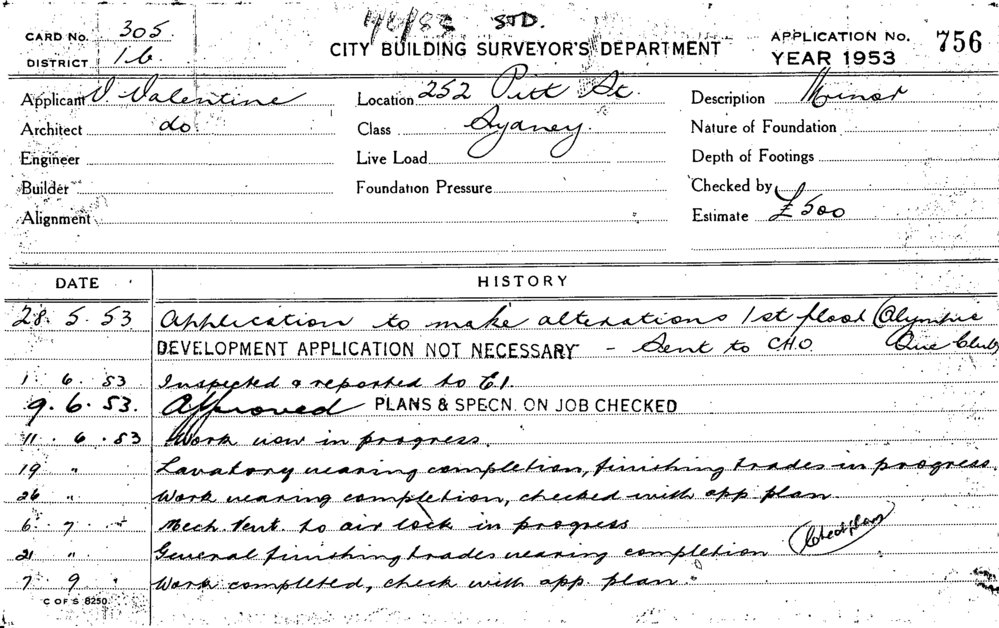 CARD No. 305
DISTRICT 16
1/6/53 STD.
CITY BUILDING SURVEYOR'S DEPARTMENT
APPLICATION No. 756
YEAR 1953
Applicant V Valentine
Location 252 Pitt St.
Description Minor
Architect do
Class Sydney.
Nature of Foundation
Engineer
Live Load
Depth of Footings
Builder
Foundation Pressure
Checked by
Alignment
Estimate £500
DATE HISTORY
28. 5. 53 Application to make alterations 1st floor (Olympic
DEVELOPMENT APPLICATION NOT NECESSARY - Sent to CHO. Club)
1. 6. 53 Inspected & reported to E.I.
9. 6. 53. Approved PLANS & SPECN. ON JOB CHECKED
11. 6. 53 Work now in progress.
19 " Lavatory nearing completion, finishing trades in progress.
26 " Work nearing completion, checked with app. plan
6. 7 Mech. Vent. to air lock in progress
21 " General finishing trades nearing completion
7 9 " Work completed, check with app. plan.
C OF S 8250